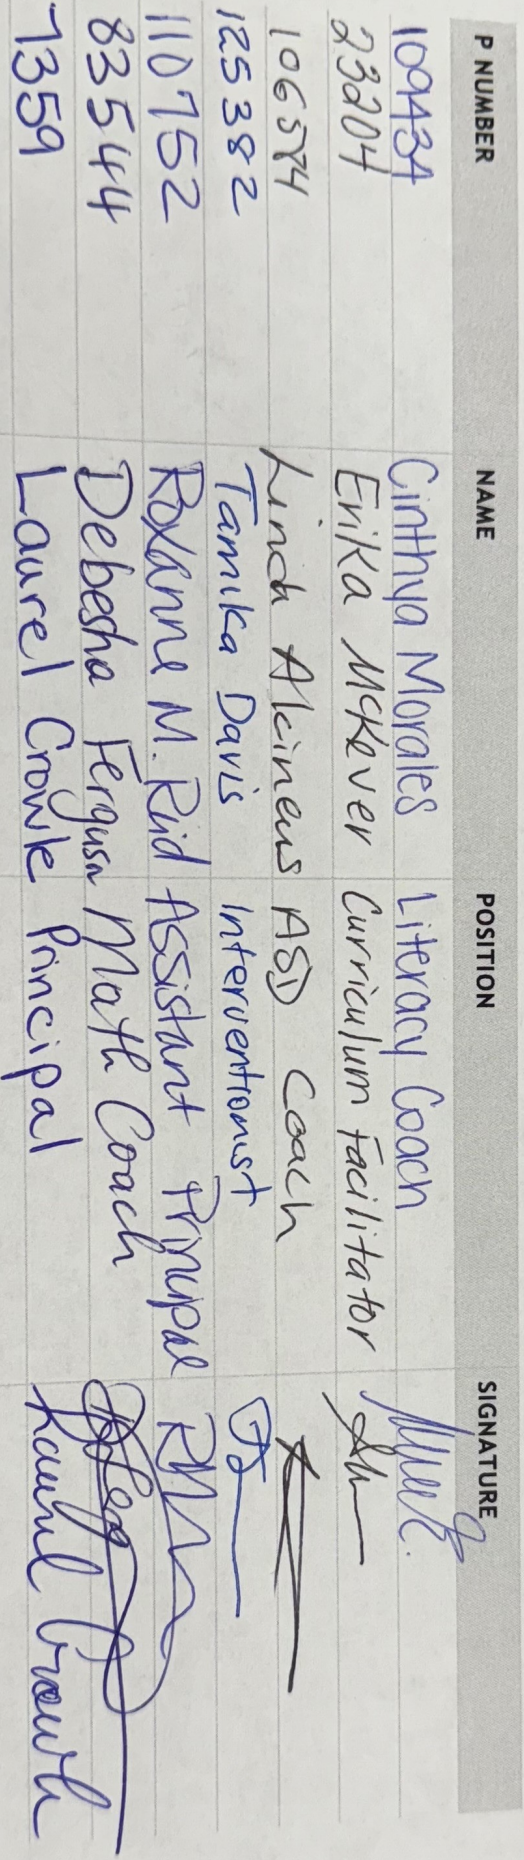 P NUMBER NAME POSITION SIGNATURE
109434 Cinthya Morales Literacy Coach
23204 Erika McKever Curriculum Facilitator
106574 Linda ASD Coach
125382 Tamika Davis Interventionist
110752 Roxanne M. Reid Assistant Principal
83544 Debesha Ferguson Math Coach
7359 Laurel Crowle Principal